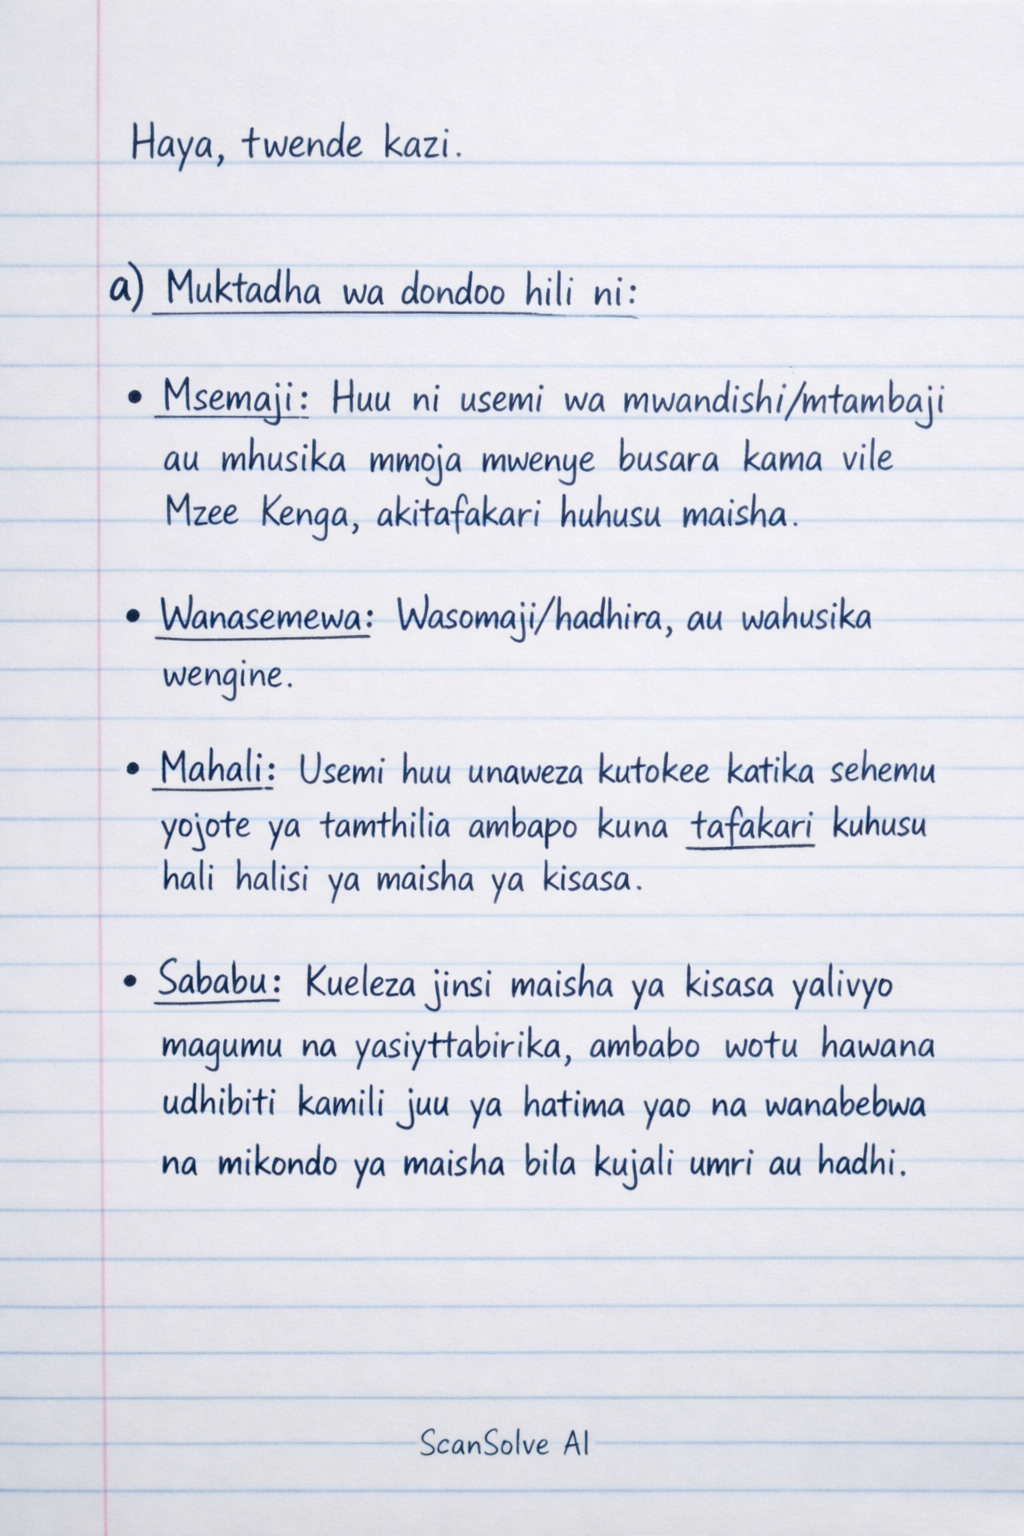 Haya, twende kazi.
a) Muktadha wa dondoo hili ni:
• Msemaji: Huu ni usemi wa mwandishi/mtambaji
au mhusika mmoja mwenye busara kama vile
Mzee Kenga, akitafakari huhusu maisha.
• Wanasemewa: Wasomaji/hadhira, au wahusika
wengine.
• Mahali: Usemi huu unaweza kutokee katika sehemu
yojote ya tamthilia ambapo kuna tafakari kuhusu
hali halisi ya maisha ya kisasa.
• Sababu: Kueleza jinsi maisha ya kisasa yalivyo
magumu na yasiyttabirika, ambabo wotu hawana
udhibiti kamili juu ya hatima yao na wanabebwa
na mikondo ya maisha bila kujali umri au hadhi.
ScanSolve AI